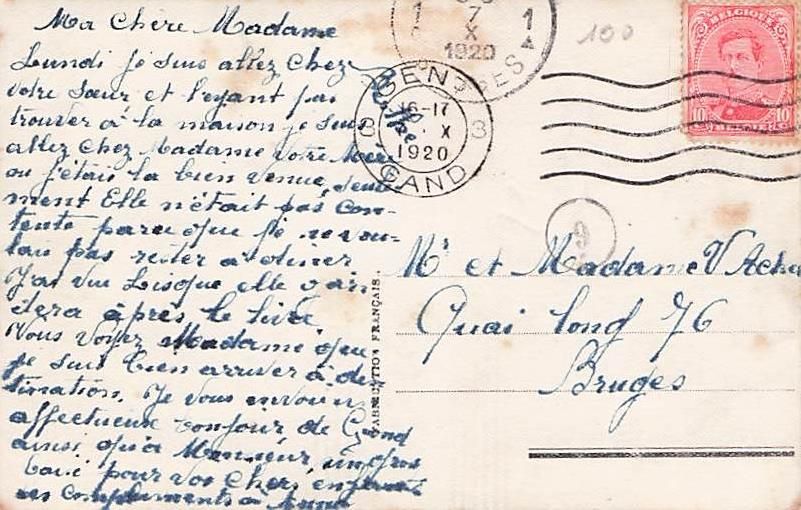 Ma Chère Madame
Lundi je suis allez chez
votre Sœur et l'eyant pas
trouver à la maison je suis
allez chez Madame votre Mère
ou j'étais la bien venue, seule
ment Elle n'était pas con-
tente parce que je ne vou-
lais pas rester a diner
J'ai vue Lisque elle vien
dera après le
Vous voyez Madame que
je suis bien arriver à des
tination. Je vous envoie un
affectueux bonjour de Gand
ainsi qu'a Monsieur, un gros
pour vos chers enfants
compliments à Anna
1 7 1
X
1920
GENT
16-17
3 X 3
1920
GAND
100
BELGIQUE
10 10
9
Mr et Madame
Quai long 76
Bruges
FABRICATION FRANÇAISE